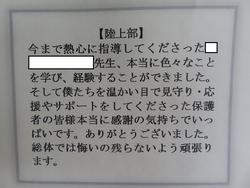 【陸上部】
今まで熱心に指導してくださった
先生、本当に色々なこと
を学び、経験することができました。
そして僕たちを温かい目で見守り・応
援やサポートをしてくださった保護
者の皆様本当に感謝の気持ちでいっ
ぱいです。ありがとうございました。
総体では悔いの残らないよう頑張り
ます。